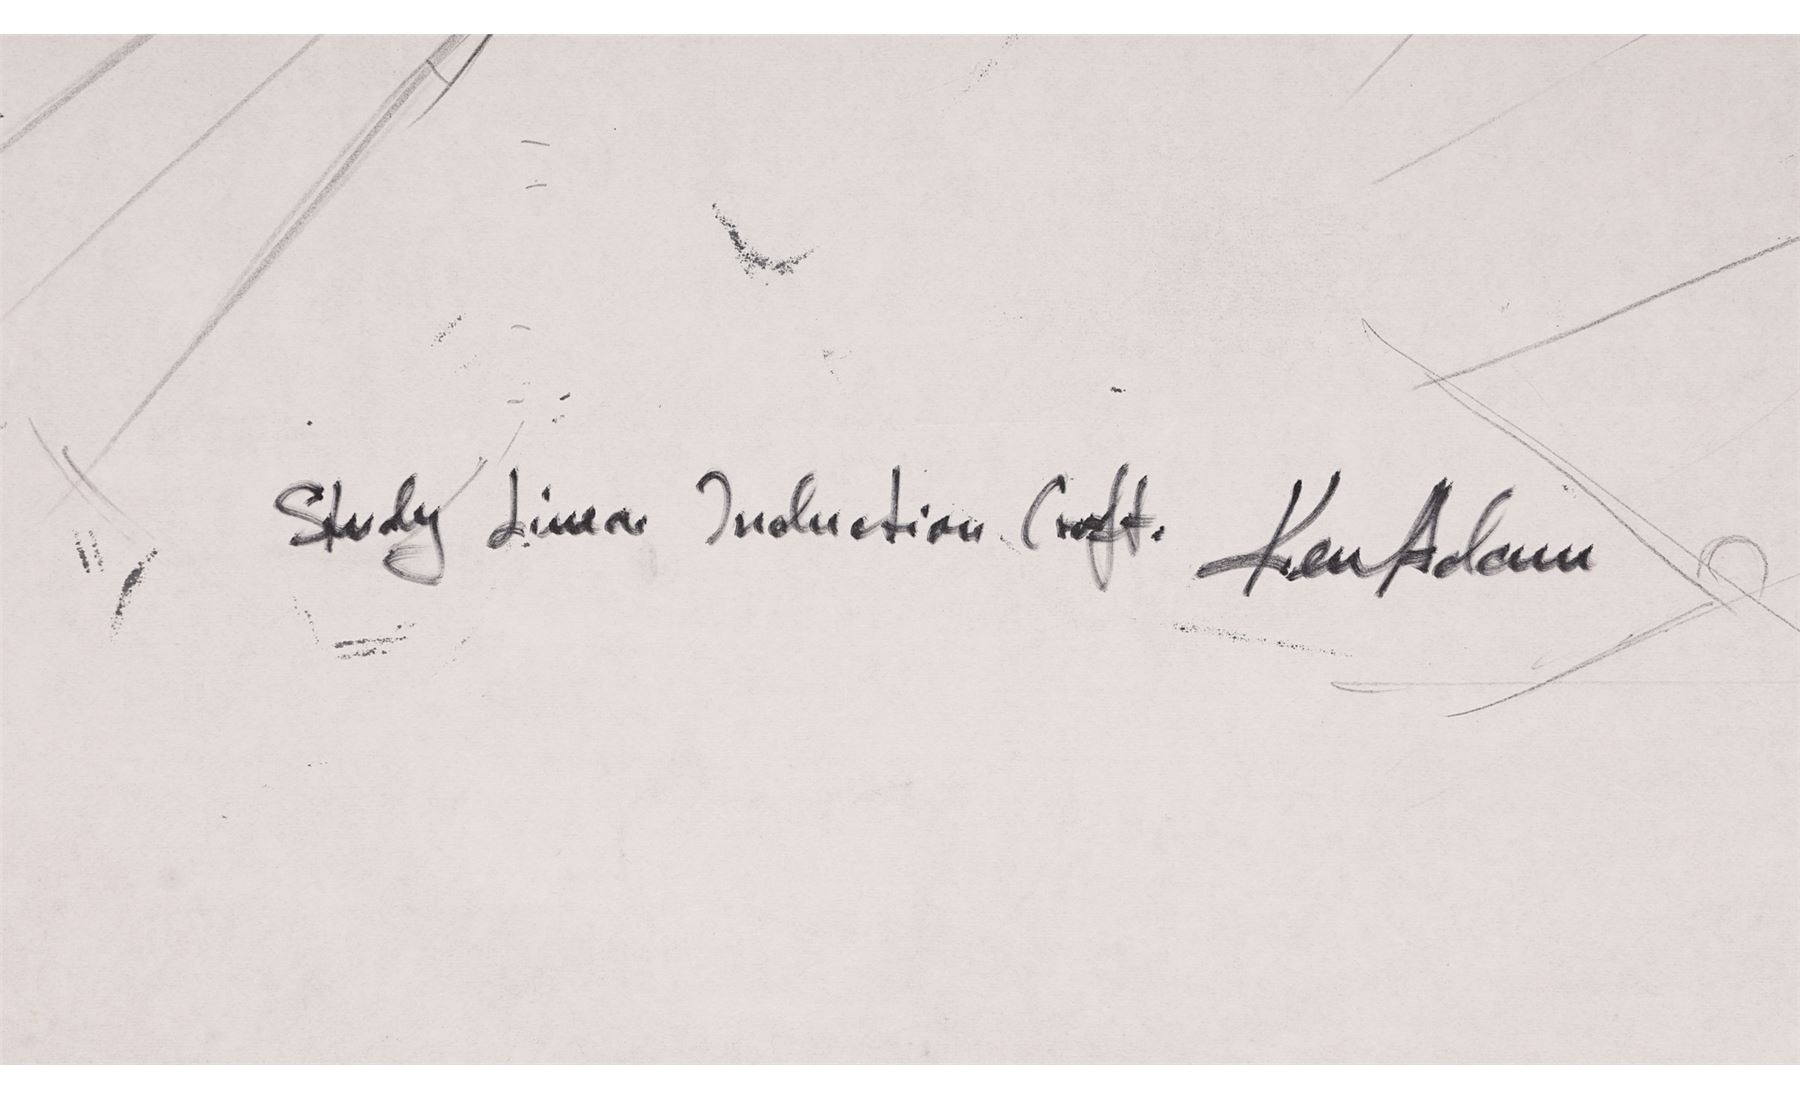 Study Linear Induction Craft. Ken Adam